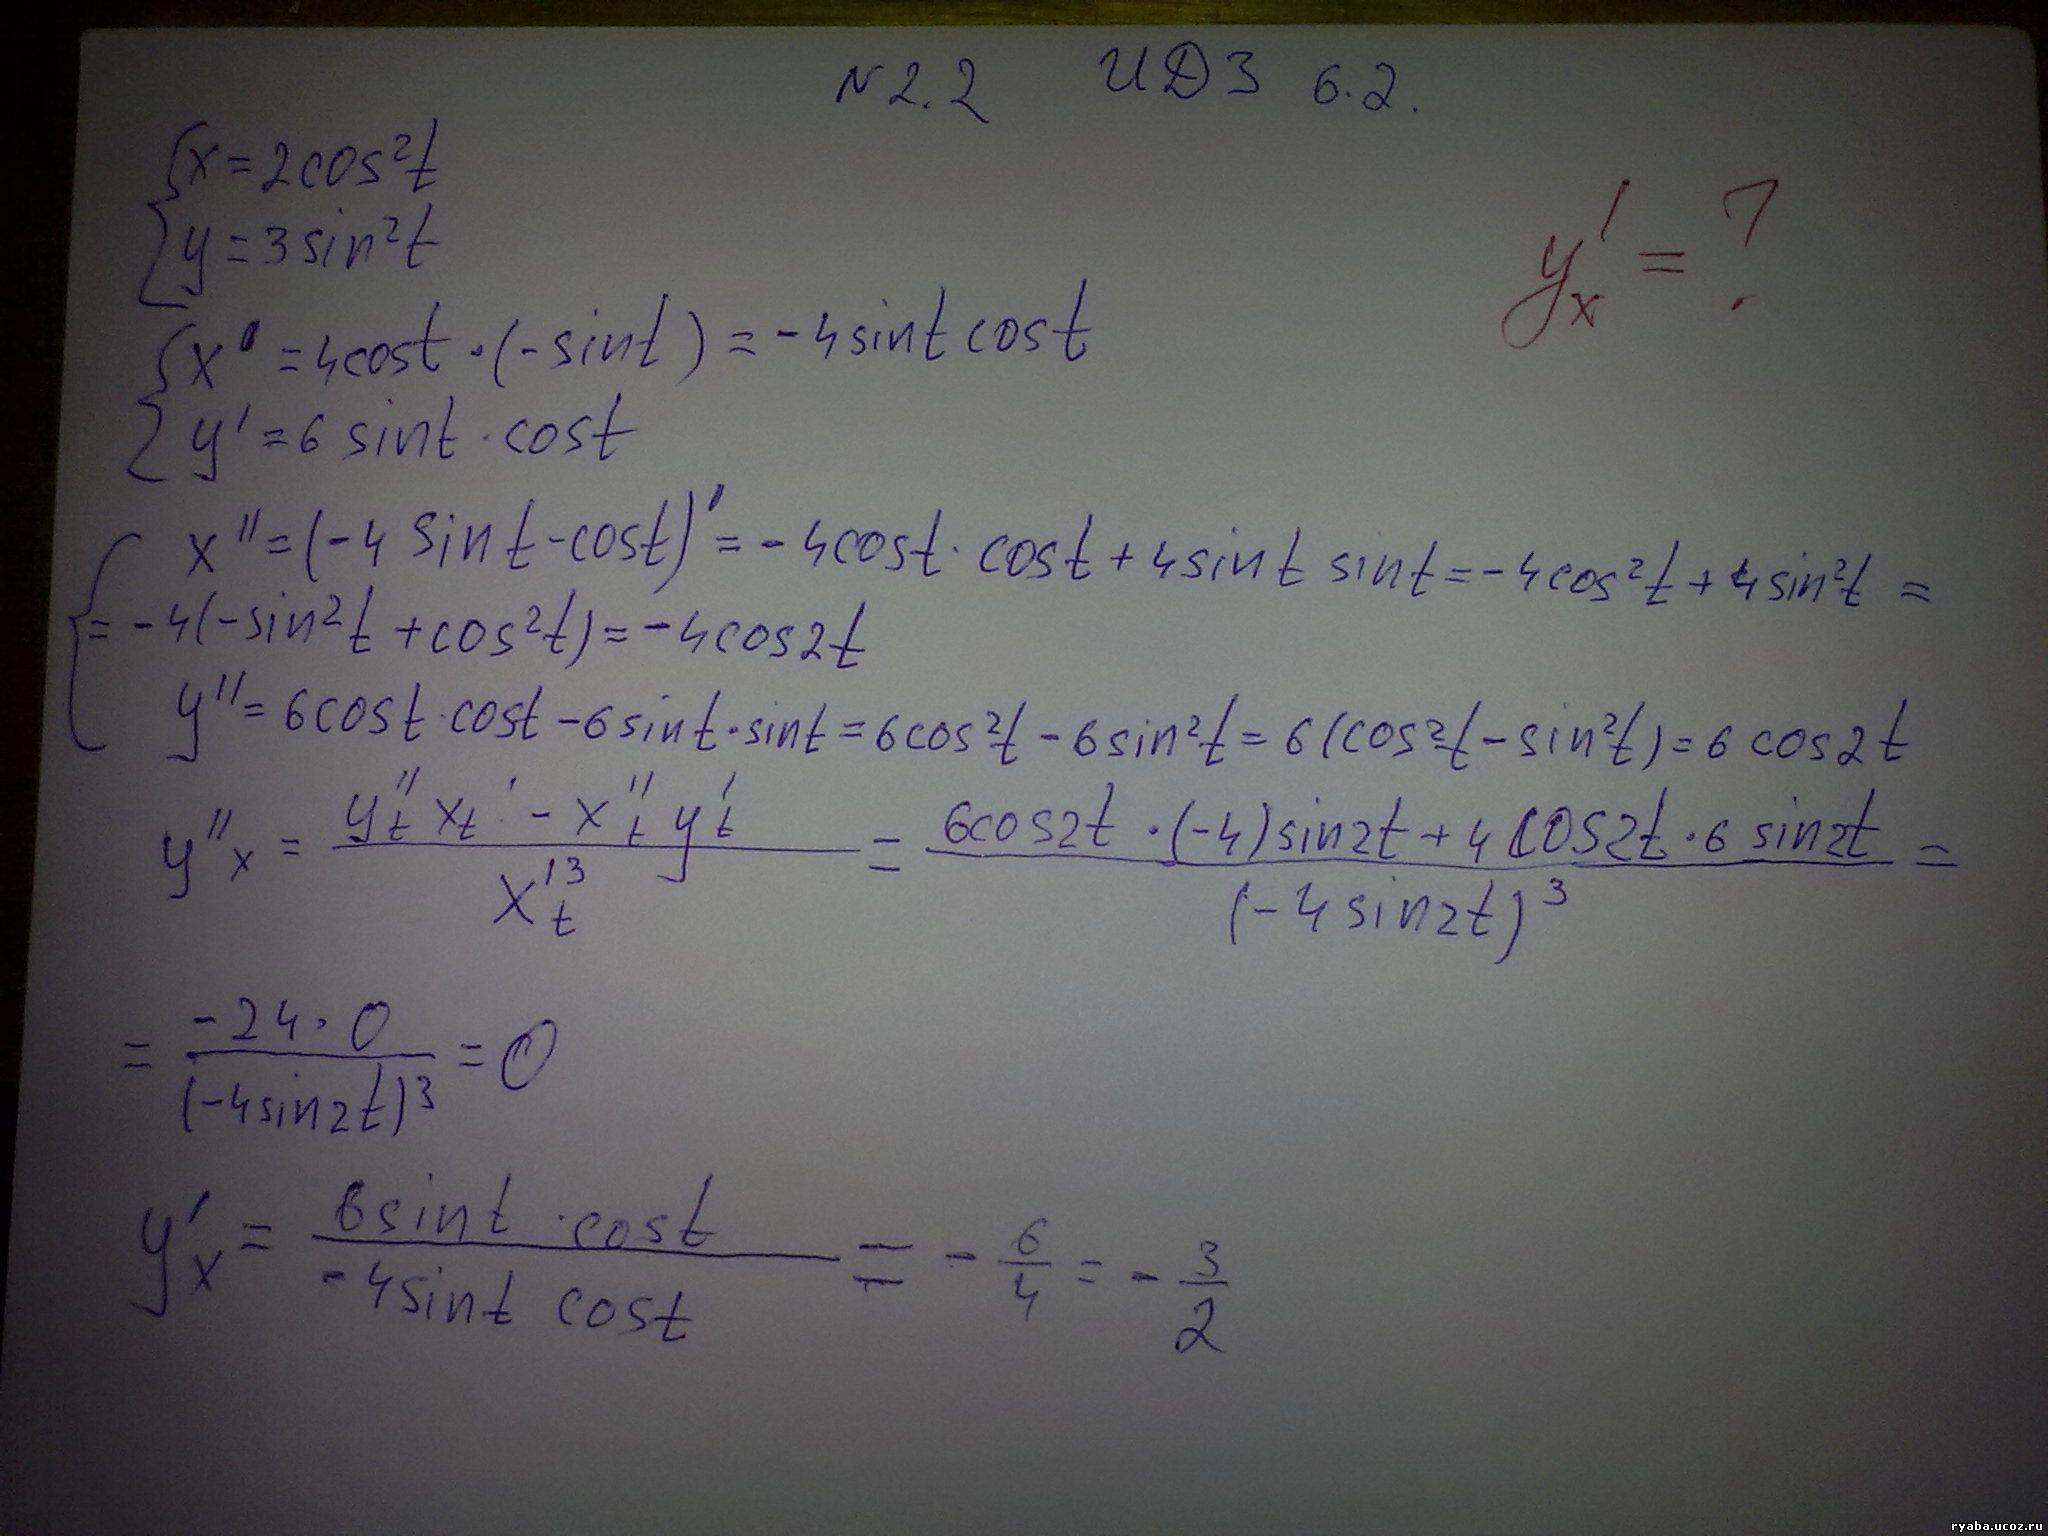 N2.2 ИДЗ 6.2.
x=2cos²t
y=3sin²t
y'ₓ=?
x'=4cost·(-sint)=-4sint cost
y'=6sint·cost
x''=(-4sint-cost)'=-4cost·cost+4sint sint=-4cos²t+4sin²t=
=-4(-sin²t+cos²t)=-4cos2t
y''=6cost·cost-6sint·sint=6cos²t-6sin²t=6(cos²t-sin²t)=6cos2t
y''ₓ = (y''ₜ xₜ' - x''ₜ y'ₜ)/x'³ₜ = (6cos2t·(-4)sin2t+4cos2t·6sin2t)/(-4sin2t)³ =
= -24·0/(-4sin2t)³ = 0
y'ₓ = 6sint·cost/-4sint cost = -6/4 = -3/2
ryaba.ucoz.ru